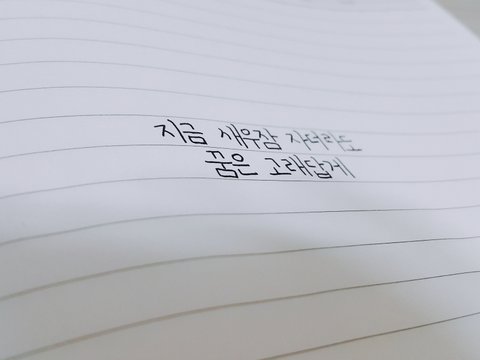 지금 새우잠 자더라도
꿈은 고래답게